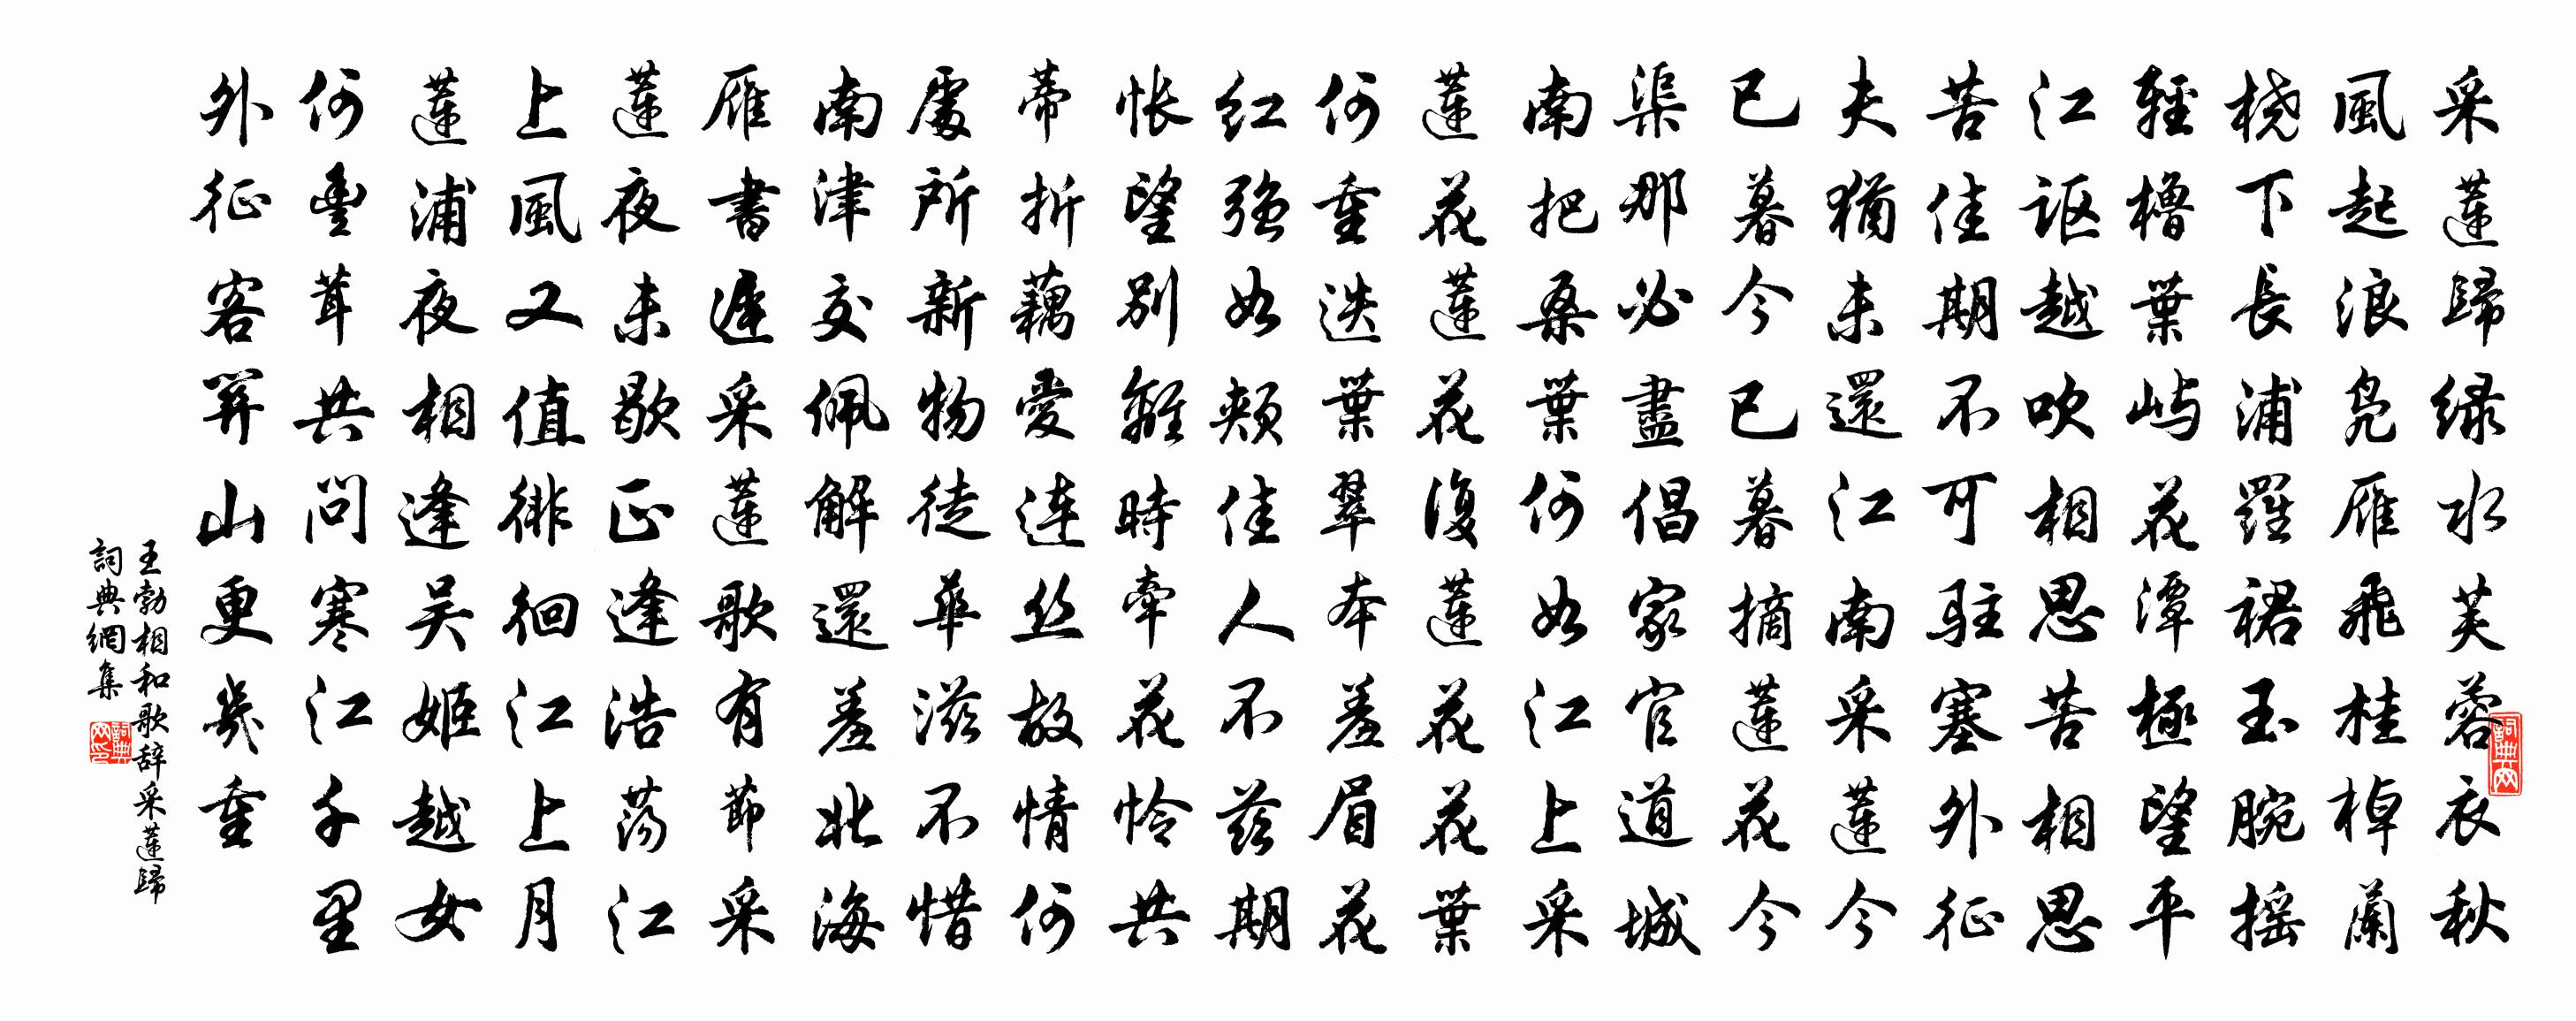 采蓮歸绿水芙蓉衣秋
風起浪凫雁飛桂棹蘭
桡下長浦羅裙玉腕摇
輕櫓葉屿花潭極望平
江讴越吹相思苦相思
苦佳期不可駐塞外征
夫猶未還江南采蓮今
已暮今已暮摘蓮花今
渠那必盡倡家官道城
南把桑葉何如江上采
蓮花蓮花復蓮花花葉
何重迭葉翠本羞眉花
红强如颊佳人不兹期
怅望别離時牽花怜共
蒂折藕愛连丝故情何
處所新物徒華滋不惜
南津交佩解還羞北海
雁書遲采蓮歌有節采
蓮夜未歇正逢浩荡江
上風又值徘徊江上月
蓮浦夜相逢吴姬越女
何豐茸共問寒江千里
外征客關山更幾重
王勃相和歌辞采蓮歸
詞典網集
詞典网
詞典网印